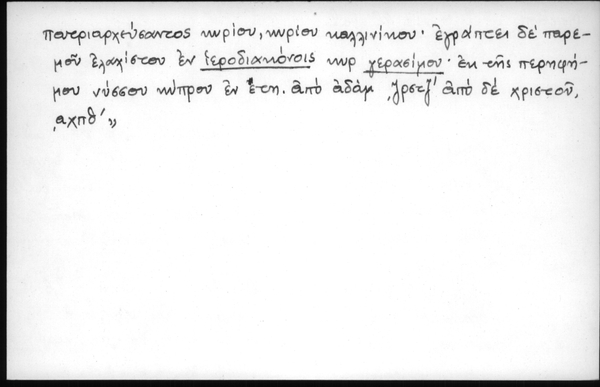 πατριαρχεύσαντος κυρίου, κυρίου καλλινίκου· ἐγράπτει δέ παρε-
μοῦ ἐλαχίστου ἐν ἱεροδιακόνοις κυρ γερασίμου· ἐκ τῆς περηφή-
μου νύσσου κύπρου ἐν ἔτη. ἀπό ἀδάμ ἀπό δέ χριστοῦ,
͵αχπθʹ"